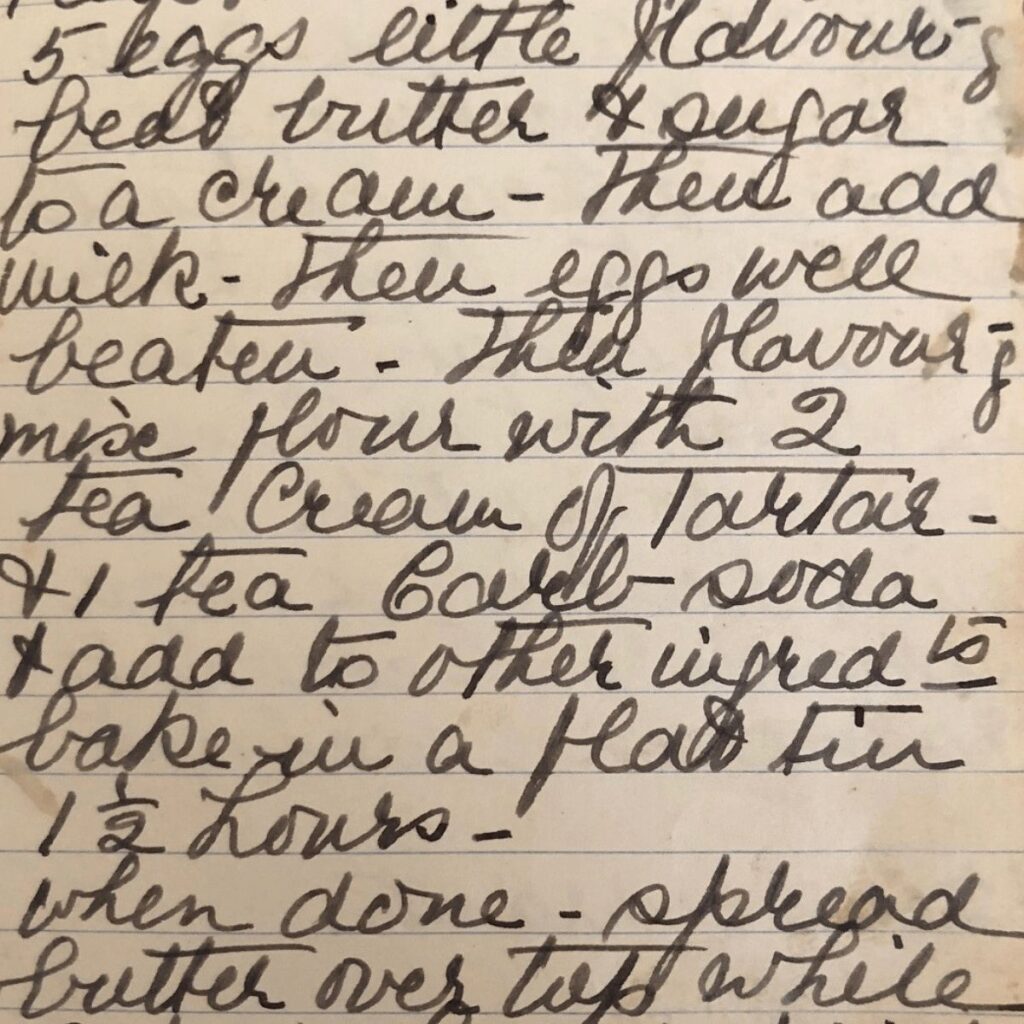 5 eggs little flavour-g
beat butter & sugar
to a cream - Then add
milk - Then eggs well
beaten - Then flavour-g
mix flour with 2
tea Cream of Tartar -
& 1 tea Carb-soda
& add to other ingredts
bake in a flat tin
1 1/2 hours -
when done - spread
butter over top while